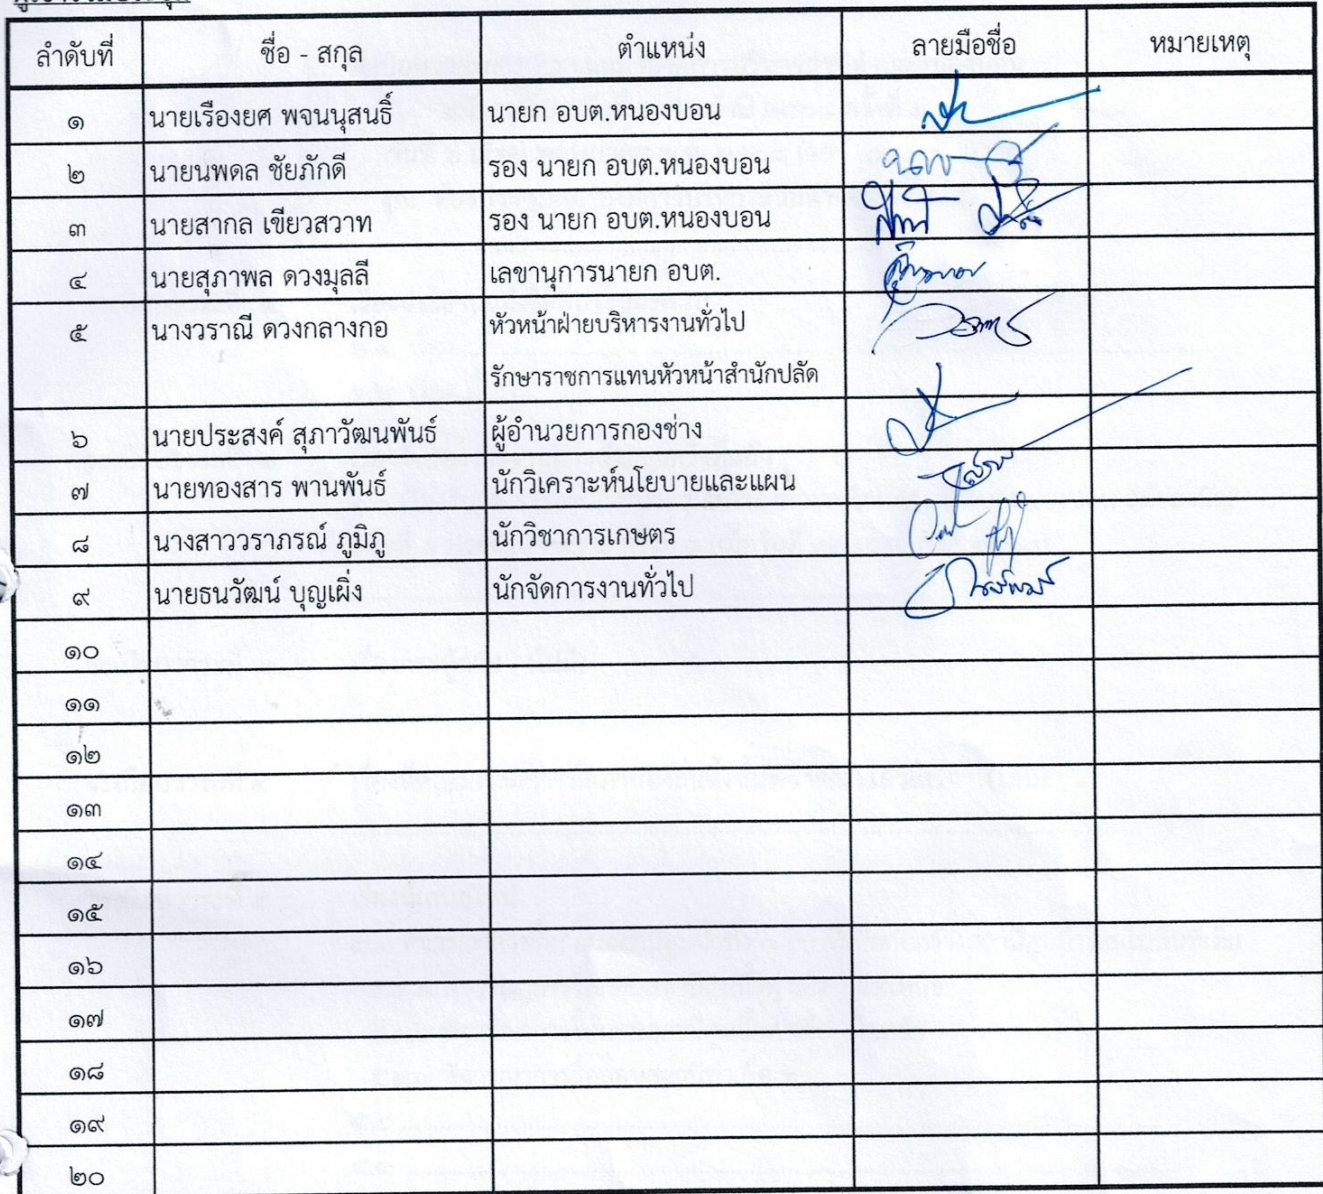 ผู้เข้าร่วมประชุม
ลำดับที่ ชื่อ - สกุล ตำแหน่ง ลายมือชื่อ หมายเหตุ
๑ นายเรืองยศ พจนนุสนธิ์ นายก อบต.หนองบอน
๒ นายนพดล ชัยภักดี รอง นายก อบต.หนองบอน
๓ นายสากล เขียวสวาท รอง นายก อบต.หนองบอน
๔ นายสุภาพล ดวงมุลลี เลขานุการนายก อบต.
๕ นางวราณี ดวงกลางกอ หัวหน้าฝ่ายบริหารงานทั่วไป
รักษาราชการแทนหัวหน้าสำนักปลัด
๖ นายประสงค์ สุภาวัฒนพันธ์ ผู้อำนวยการกองช่าง
๗ นายทองสาร พานพันธ์ นักวิเคราะห์นโยบายและแผน
๘ นางสาววราภรณ์ ภูมิภู นักวิชาการเกษตร
๙ นายธนวัฒน์ บุญเผิ่ง นักจัดการงานทั่วไป
๑๐
๑๑
๑๒
๑๓
๑๔
๑๕
๑๖
๑๗
๑๘
๑๙
๒๐